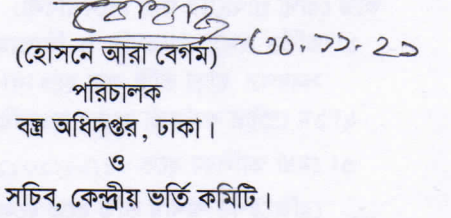 ৩০.১১.২১
(হোসনে আরা বেগম)
পরিচালক
বস্ত্র অধিদপ্তর, ঢাকা।
ও
সচিব, কেন্দ্রীয় ভর্তি কমিটি।